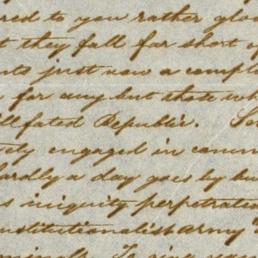 red to you rather gloo
t they fall far short o
nts just now a compl
far away but that wh
ll fated Republic. So
ely engaged in comm
ardly a day goes by bu
s iniquity perpetrate
nstitutionalist army